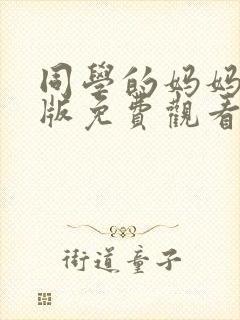 同學的妈妈
版免費觀看
街道童子